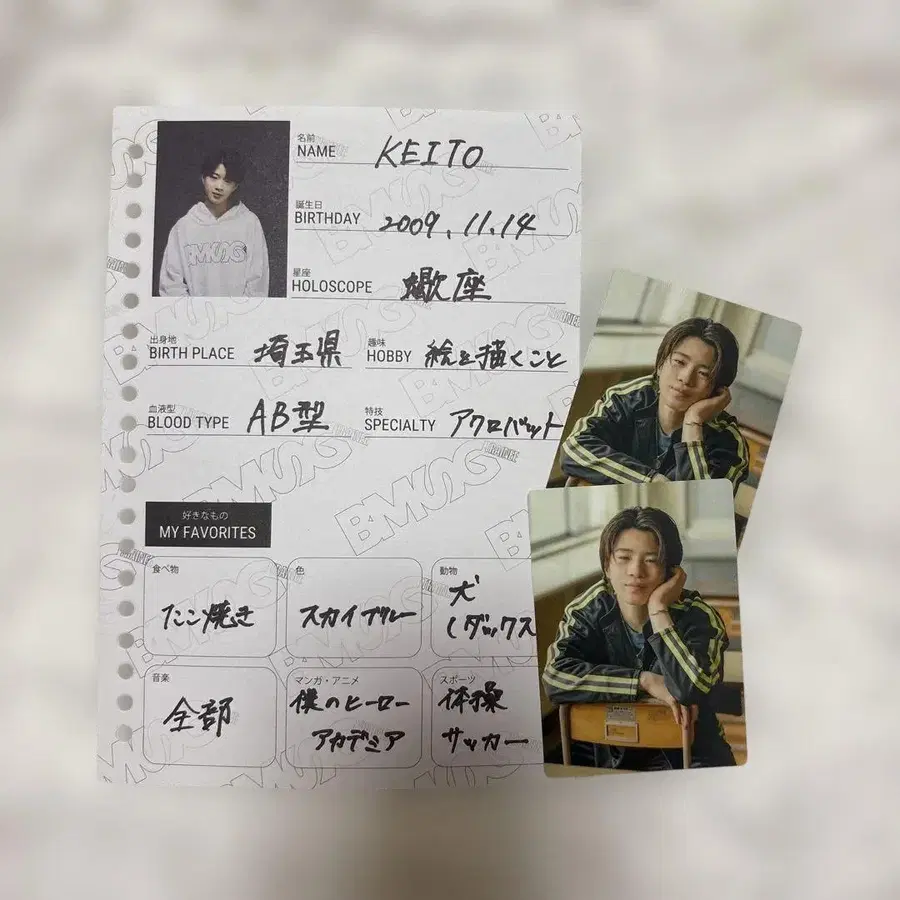 名前
NAME KEITO
誕生日
BIRTHDAY 2009.11.14
星座
HOLOSCOPE 蠍座
出身地
BIRTH PLACE 埼玉県
趣味
HOBBY 絵を描くこと
血液型
BLOOD TYPE AB型
特技
SPECIALTY アクロバット
好きなもの
MY FAVORITES
食べ物
たこ焼き
色
スカイブルー
動物
犬
(ダックス
音楽
全部
マンガ・アニメ
僕のヒーロー
アカデミア
スポーツ
体操
サッカー
BMSG
TRAINEE